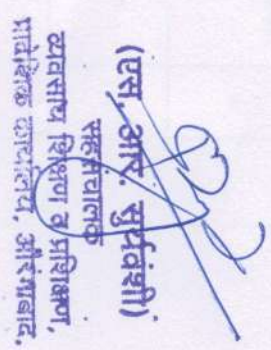 (एस. आर. सुर्यवंशी)
सहसंचालक
व्यवसाय शिक्षण व प्रशिक्षण,
प्रादेशिक कार्यालय, औरंगाबाद.